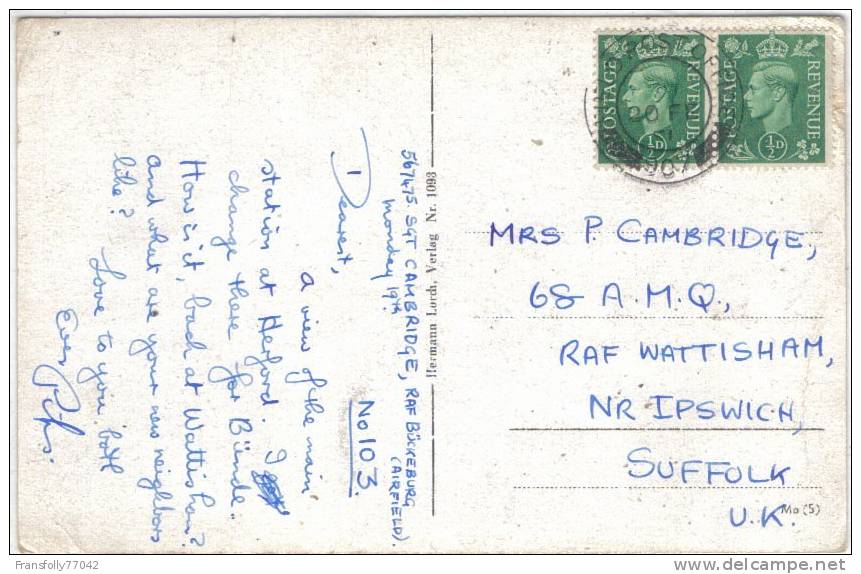 567475. SGT CAMBRIDGE, RAF BÜCKEBURG
(AIRFIELD).
Monday 19th
No 103.
Dearest,
A view of the main
station at Herford. I
change there for Bünde.
How is it, back at Wattisham?
and what are your new neighbors
like?
Love to you both
Ever
Hermann Lorch, Verlag Nr. 1093
POSTAGE REVENUE
½D
POSTAGE REVENUE
½D
20 FE
MRS P. CAMBRIDGE,
68 A.M.Q.,
RAF WATTISHAM,
NR IPSWICH,
SUFFOLK
U.K.
Mo (5)
Fransfolly77042
delcampe.net